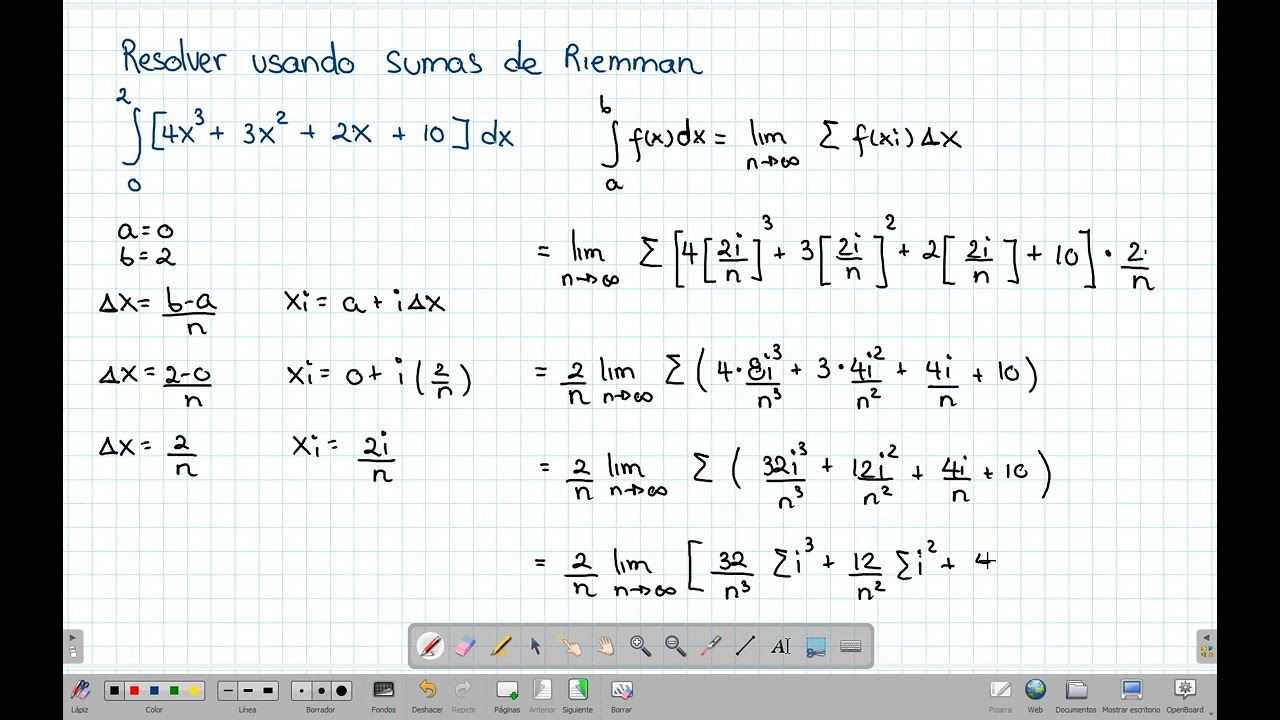 Resolver usando sumas de Riemman
∫₀² [4x³ + 3x² + 2x + 10] dx
∫ₐᵇ f(x)dx = lim n→∞ Σ f(xi) Δx
a=0
b=2
= lim n→∞ Σ [4[2i/n]³ + 3[2i/n]² + 2[2i/n] + 10] · 2/n
Δx = b-a/n
xi = a + iΔx
Δx = 2-0/n
xi = 0 + i(2/n)
= 2/n lim n→∞ Σ (4·8i³/n³ + 3·4i²/n² + 4i/n + 10)
Δx = 2/n
xi = 2i/n
= 2/n lim n→∞ Σ (32i³/n³ + 12i²/n² + 4i/n + 10)
= 2/n lim n→∞ [32/n³ Σi³ + 12/n² Σi² + 4
AI
Lápiz Color Línea Borrador Fondos Deshacer Repetir Páginas Anterior Siguiente Borrar Pizarra Web Documentos Mostrar escritorio OpenBoard